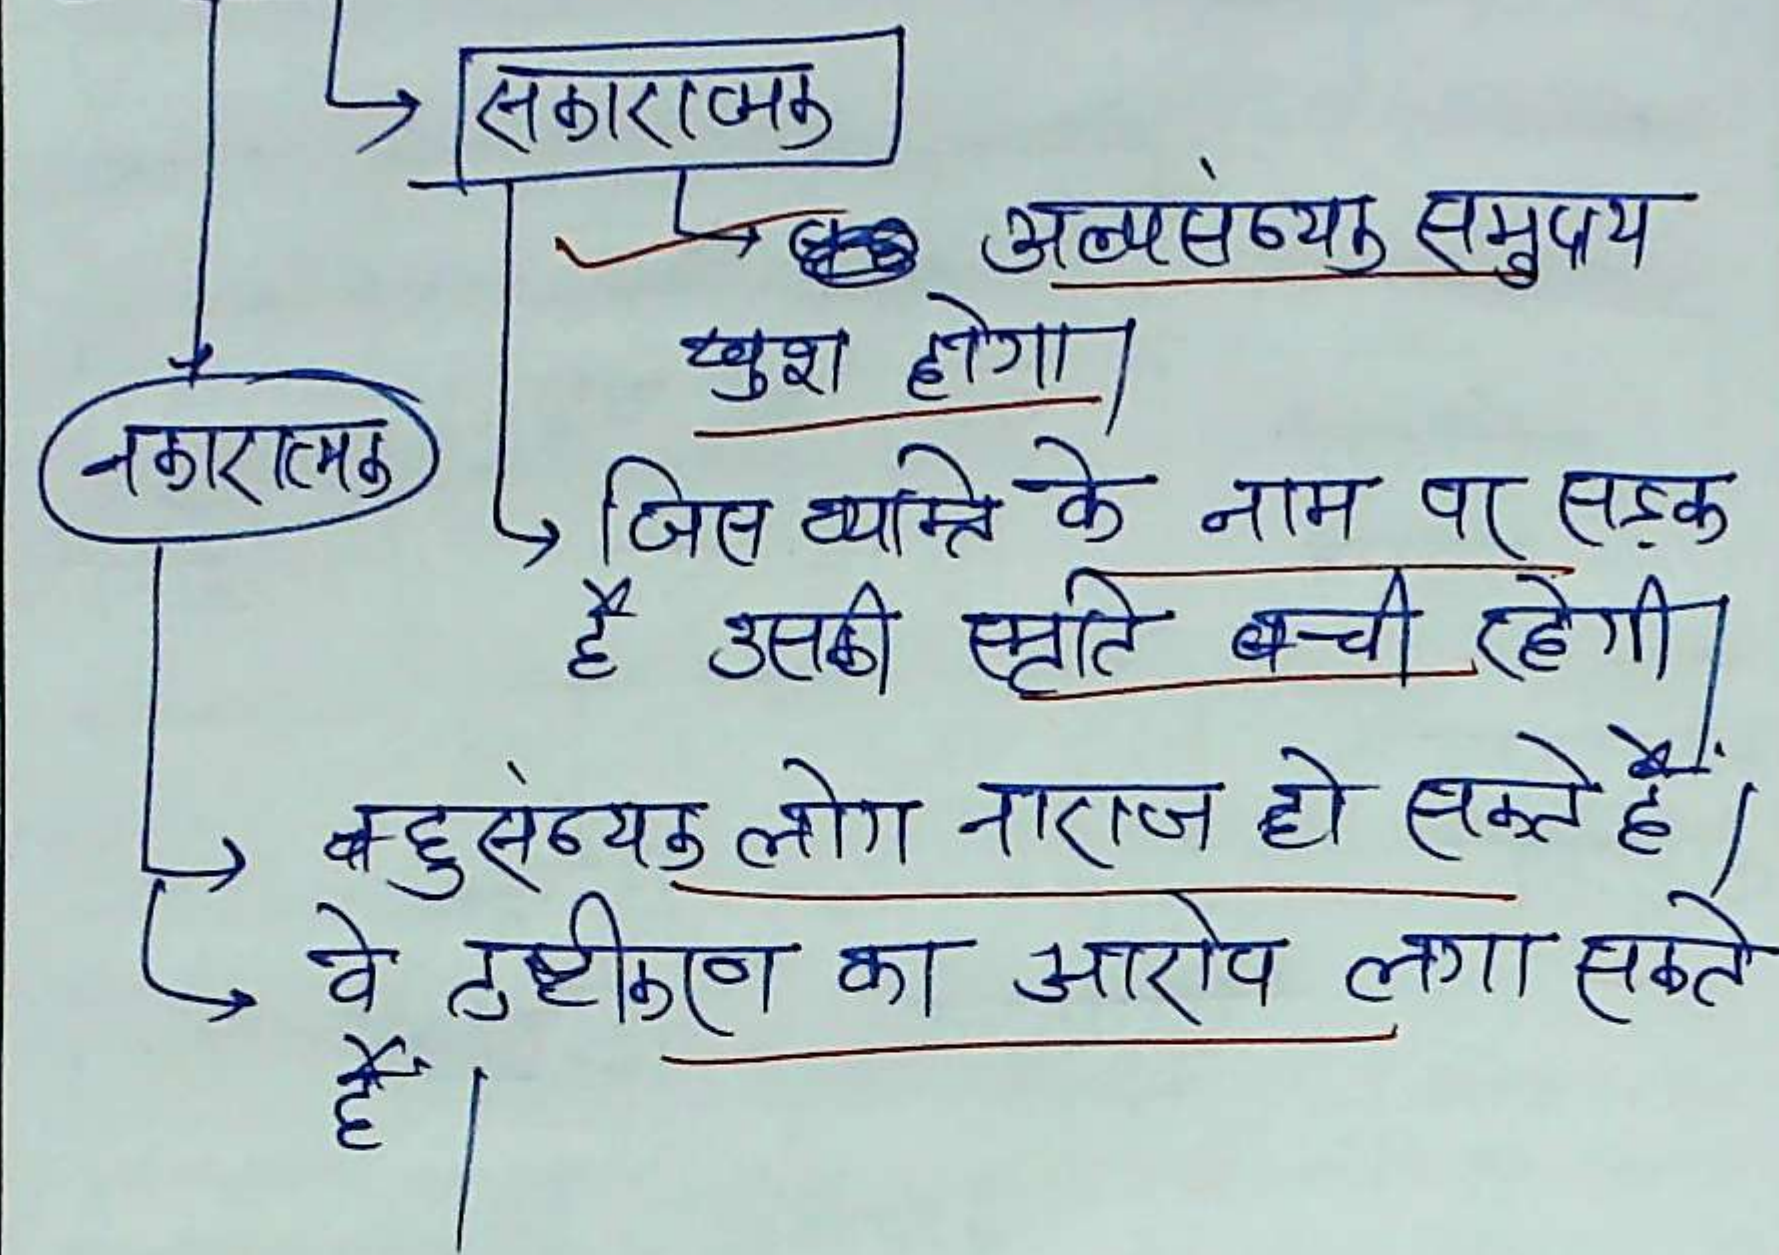 सकारात्मक
अल्पसंख्यक समुदाय
खुश होगा।
नकारात्मक
जिस व्यक्ति के नाम पर सड़क
है उसकी स्मृति बची रहेगी।
बहुसंख्यक लोग नाराज हो सकते हैं।
वे तुष्टीकरण का आरोप लगा सकते
हैं।